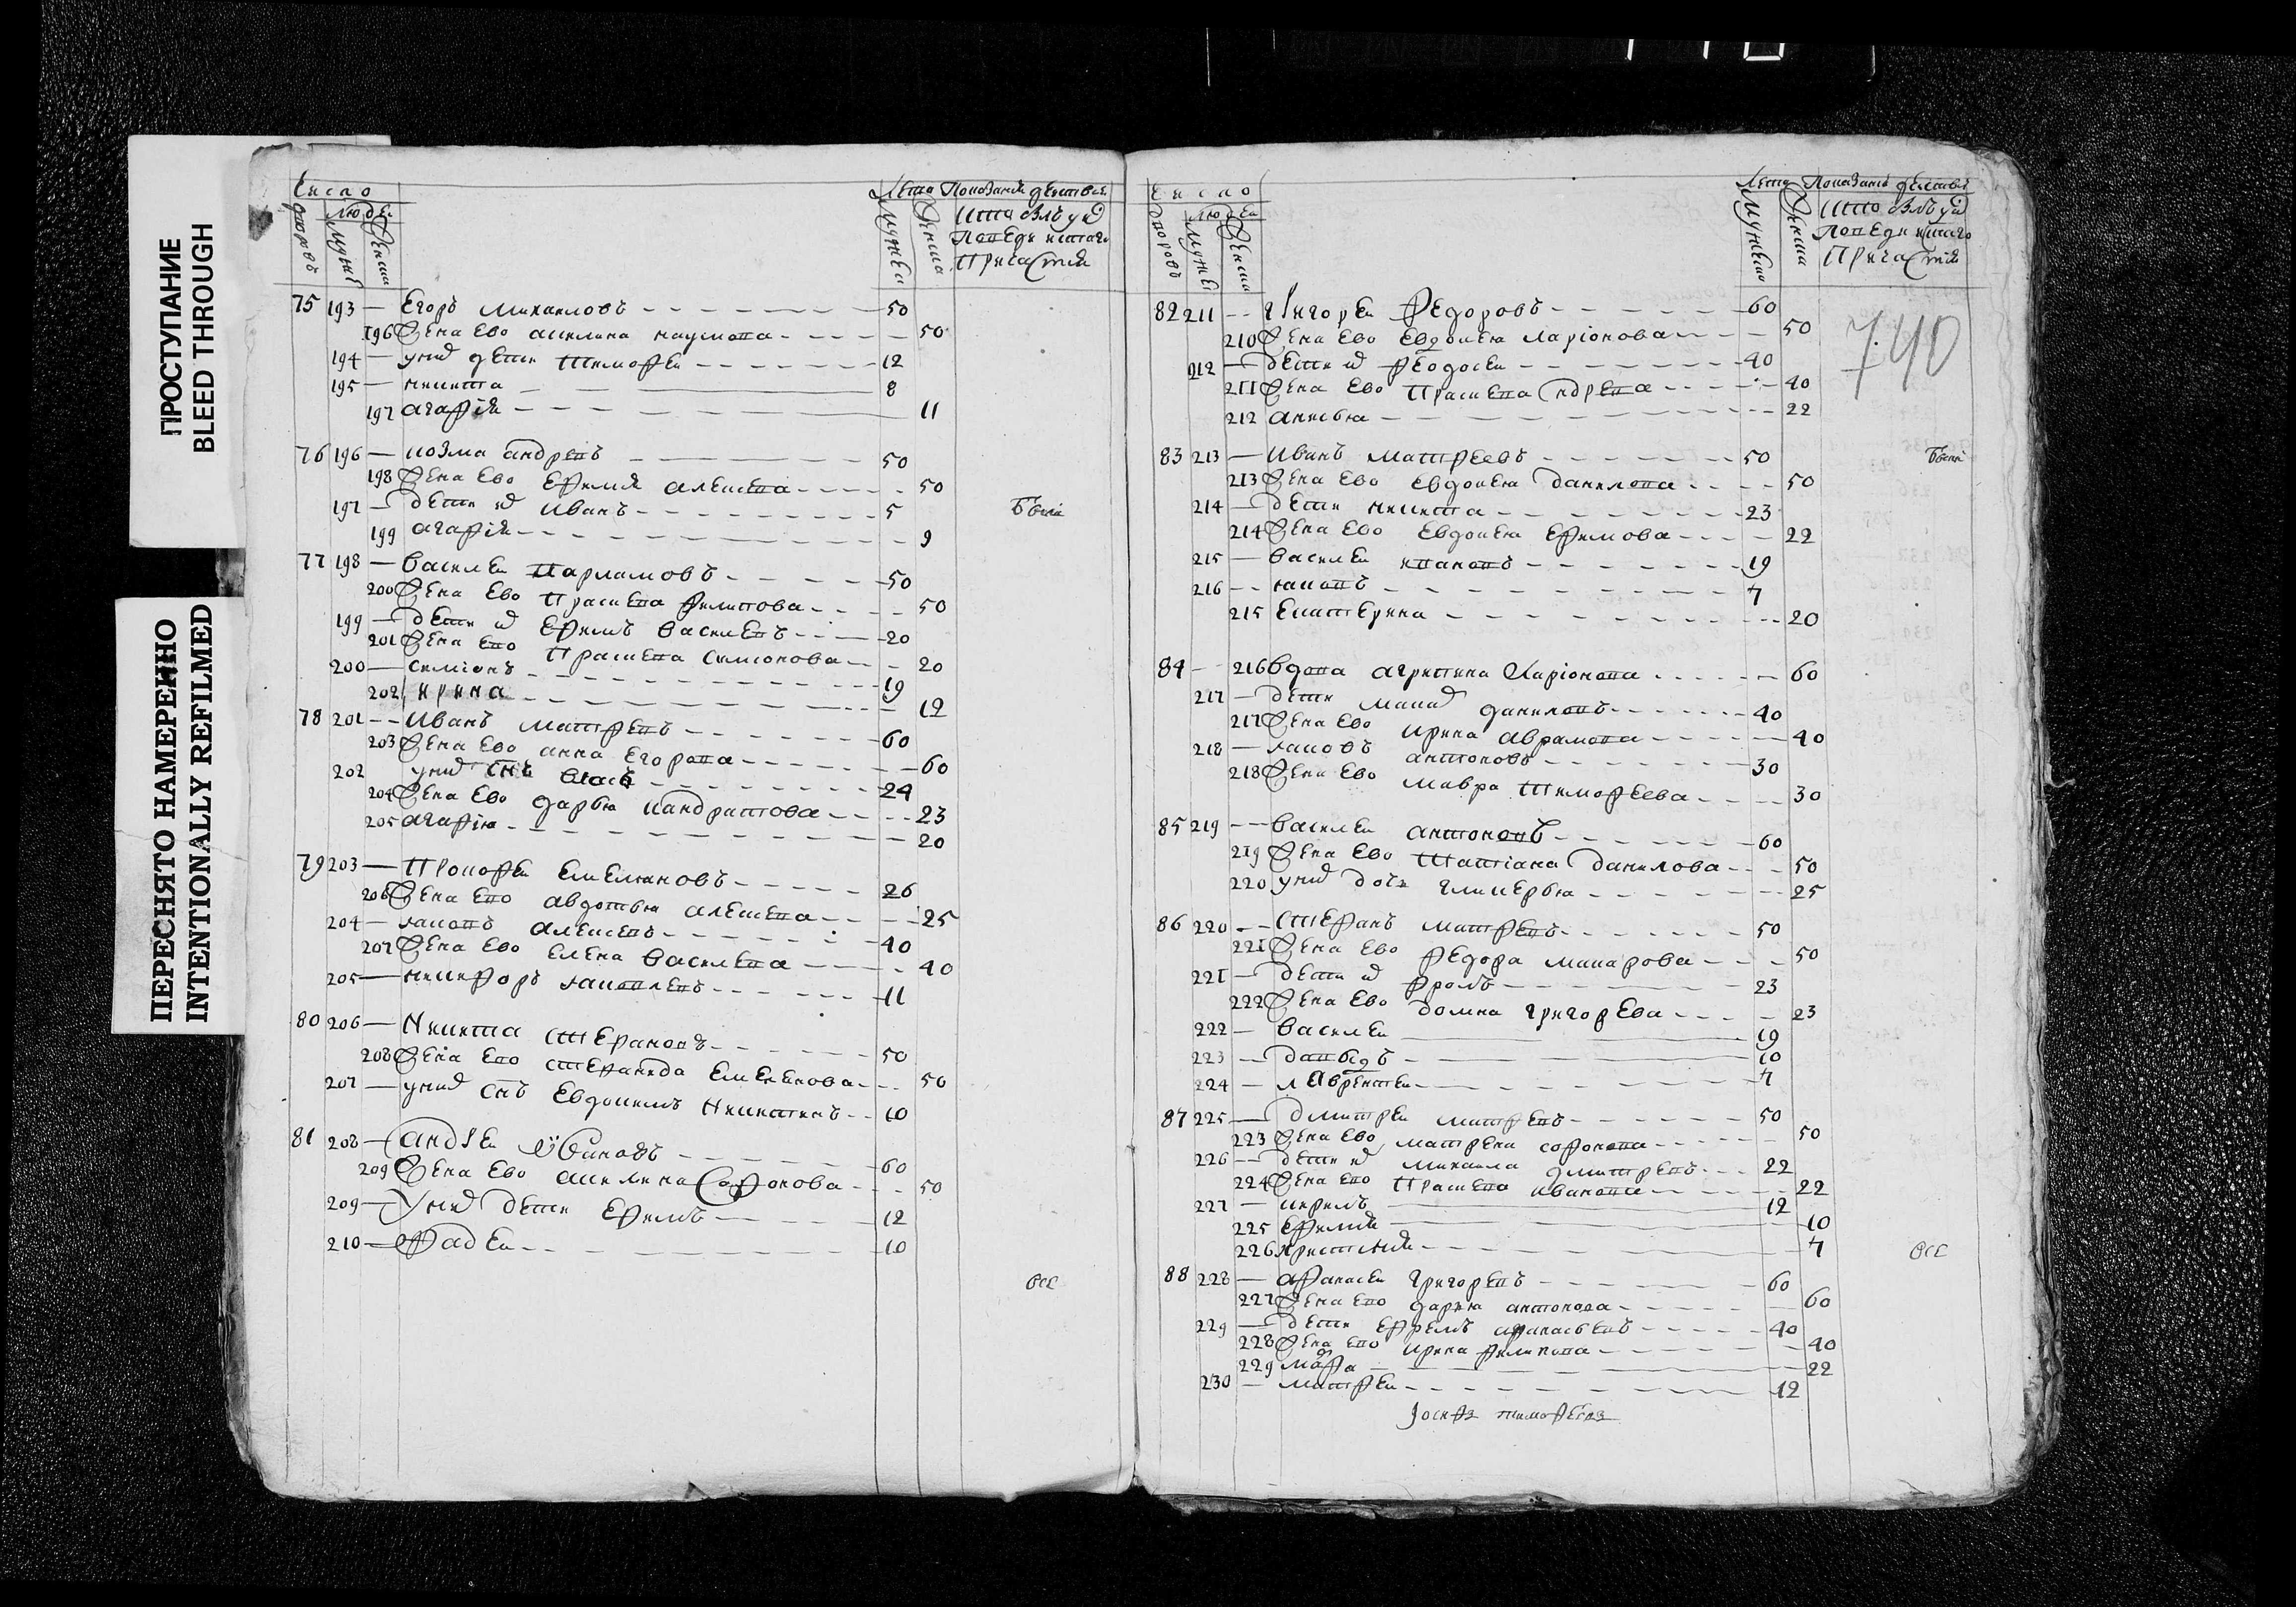 ПРОСТУПАНИЕ
BLEED THROUGH
ПЕРЕСНЯТО НАМЕРЕННО
INTENTIONALLY REFILMED
Число
дворовъ
Люден
Мужес
Женска
Лета
Мужеска
Женска
75 193 — Егоръ Михаиловъ 50
196 Жена Ево акилина наумова 50
194 — у них дети тимофеи 12
195 — никита 8
197 агафiя 11
76 196 — козма андревъ 50
198 Жена Ево Ефимия алексева 50
197 — дети их Иванъ 5
199 агафiя 9
77 198 — Василеи Варламовъ 50
200 Жена Ево Праскева филипова 50
199 — дети их Ефимъ Василевъ 20
201 Жена Ево Праскева Симонова 20
200 — симионъ 19
202 ирина 12
78 201 — Иванъ матфевъ 60
203 Жена Ево анна Егорова 60
202 у них снъ власъ 24
204 Жена Ево дарья кандратова 23
205 агафiя 20
79 203 — Прокофеи Емельяновъ 26
206 Жена Ево авдотья алексева 25
204 — яковъ алексевъ 40
207 Жена Ево Елена Василева 40
205 — никифоръ яковлевъ 11
80 206 — Никита Стефановъ 50
208 Жена Ево стефанида Емелянова 50
207 — у них снъ Евдокимъ Никитинъ 10
81 208 — Андреи Ивановъ 60
209 Жена Ево акилина Софонова 50
209 — У них дети Ефимъ 12
210 — Фадеи 10
Всс
Число
дворовъ
Люден
Мужес
Женска
Лета
Мужеска
Женска
740
82 211 — Григореи Федоровъ 60
210 Жена Ево Евдокея Ларiонова 50
212 — дети их Феодосеи 40
211 Жена Ево Праскева Андрева 40
212 анисья 22
83 213 — Иванъ Матфеевъ 50
213 Жена Ево Евдокея Данилова 50
214 — дети никита 23
214 Жена Ево Евдокея Ефимова 22
215 — Василеи ивановъ 19
216 — яковъ 7
215 Екатерина 20
84 — 216 Вдова агрипина Ларiонова 60
217 — дети Макар даниловъ 40
217 Жена Ево Ирина Аврамова 40
218 — яковъ антоновъ 30
218 Жена Ево мавра Тимофеева 30
85 219 — Василеи антоновъ 60
219 Жена Ево Татiана Данилова 50
220 у них дочь гликерья 25
86 220 — Стефанъ матфевъ 50
221 Жена Ево Федора макарова 50
221 — дети их фролъ 23
222 Жена Ево домна григорева 23
222 — Василеи 19
223 — давыдъ 10
224 — лаврентеи 7
87 225 — Дмитреи матфевъ 50
223 Жена Ево матрена софонова 50
226 — дети их михаила дмитревъ 22
224 Жена Ево Праскева иванова 22
227 — кирилъ 12
225 Ефимия 10
226 христиния 7
Всс
88 228 — афанасеи григоревъ 60
227 Жена Ево дарья антонова 60
229 — дети Ефремъ афанасьевъ 40
228 Жена Ево ирина филипова 40
229 марфа 22
230 — матфеи 12